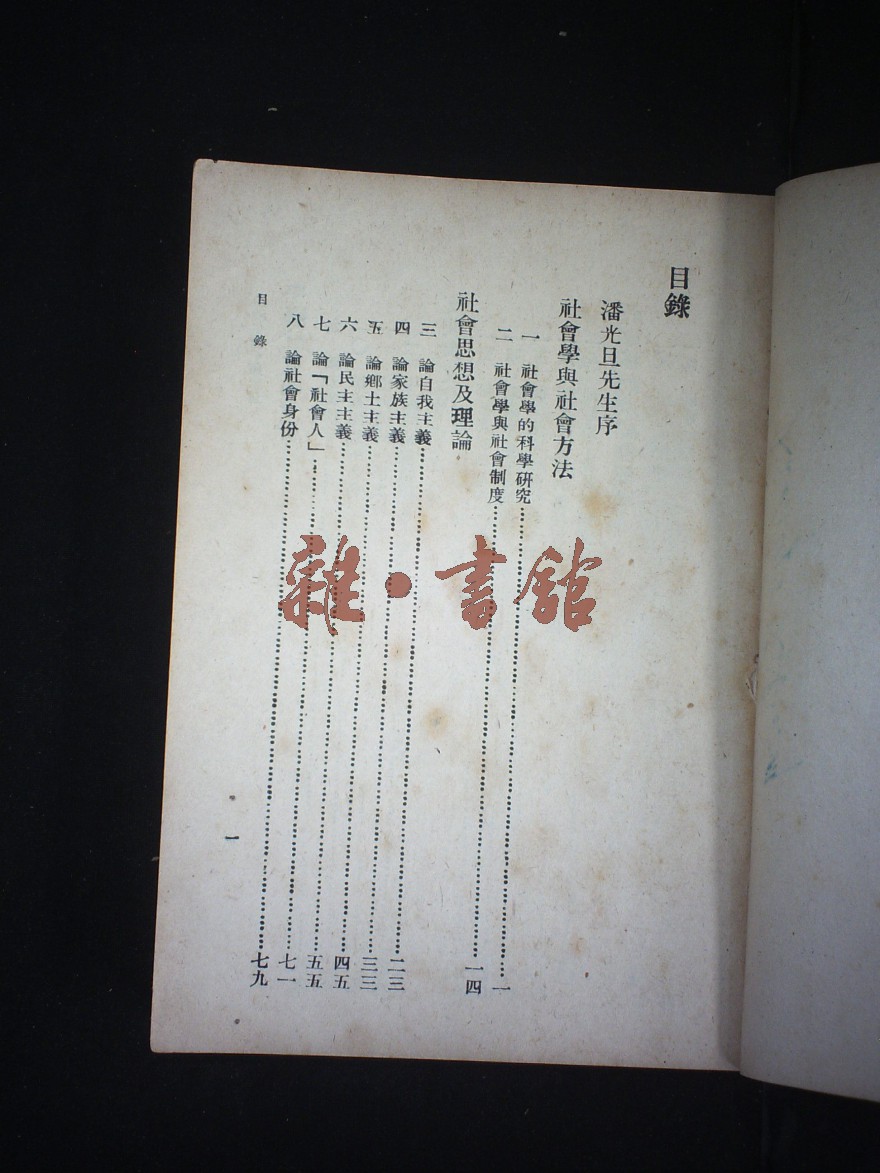 目錄
潘光旦先生序
社會學與社會方法
一 社會學的科學研究……一
二 社會學與社會制度……一四
社會思想及理論
三 論自我主義……二三
四 論家族主義……三三
五 論鄉土主義……四五
六 論民主主義……五五
七 論「社會人」……七一
八 論社會身份……七九
目錄
一
雜·書館